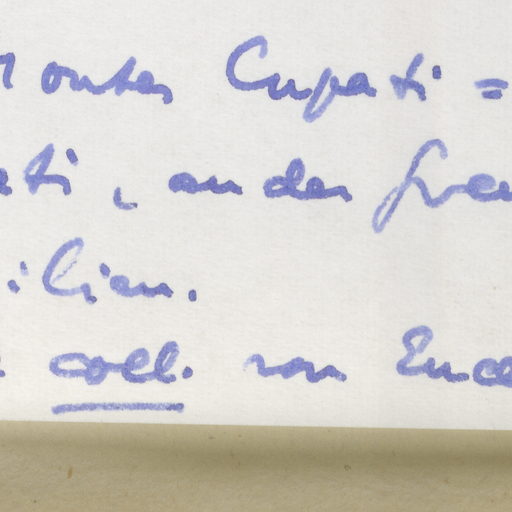 Montes Cupati =
ati, an der Gren
ilien.
coll. von Ence